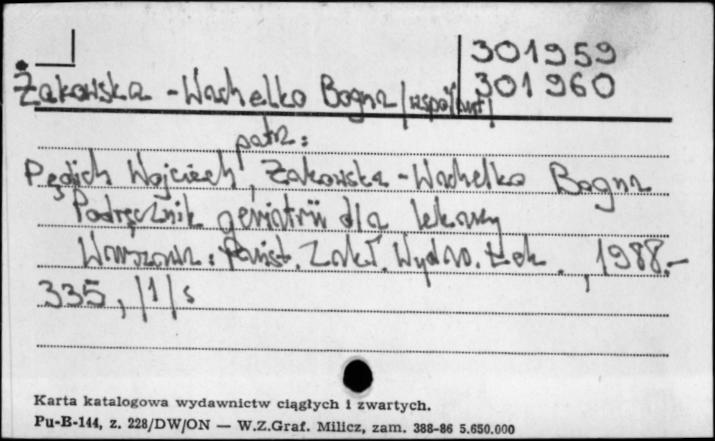 301959
301960
Żakowska-Wachelko Bogna /współaut/
patrz:
Pędich Wojciech, Żakowska-Wachelko Bogna
Podręcznik geriatrii dla lekarzy
Warszawa: Państ. Zakł. Wydaw. Lek., 1988.-
335, /1/ s
Karta katalogowa wydawnictw ciągłych i zwartych.
Pu-B-144, z. 228/DW/ON — W.Z.Graf. Milicz, zam. 388-86 5.650.000